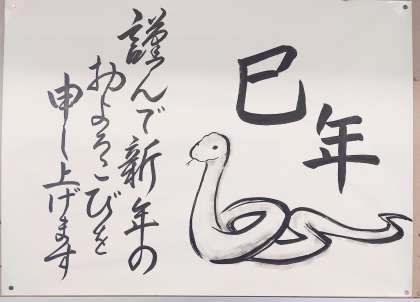 巳年
謹んで新年の
およろこびを
申し上げます